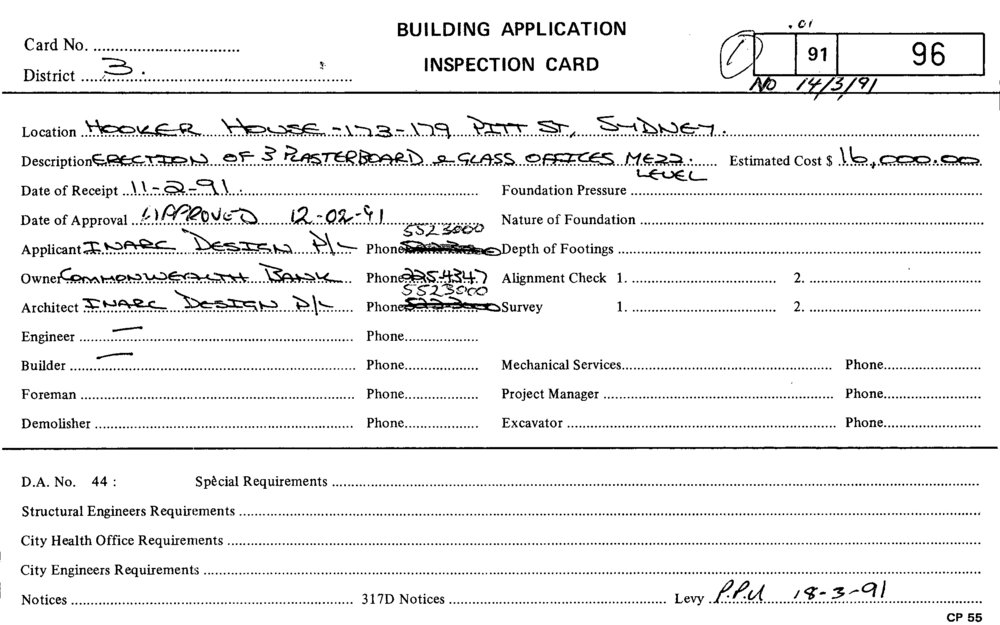 BUILDING APPLICATION
INSPECTION CARD
Card No. ..........
District ..... 3 .
.01
1 91 96
NO 14/3/91
Location HOOKER HOUSE - 173-179 PITT ST, SYDNEY.
Description ERECTION OF 3 PLASTERBOARD & GLASS OFFICES MEZZ. LEVEL Estimated Cost $ 16,000.00
Date of Receipt 11-2-91. Foundation Pressure ..........
Date of Approval APPROVED 12-02-91 Nature of Foundation ..........
Applicant INARC DESIGN P/L Phone 5523000 Depth of Footings ..........
Owner COMMONWEALTH BANK Phone 225-4347 Alignment Check 1. .......... 2. ..........
Architect INARC DESIGN P/L Phone 5523000 Survey 1. .......... 2. ..........
Engineer — Phone..........
Builder — Phone.......... Mechanical Services.......... Phone..........
Foreman .......... Phone.......... Project Manager .......... Phone..........
Demolisher .......... Phone.......... Excavator .......... Phone..........
D.A. No. 44 : Special Requirements ..........
Structural Engineers Requirements ..........
City Health Office Requirements ..........
City Engineers Requirements ..........
Notices .......... 317D Notices .......... Levy P.P.U 18-3-91
CP 55